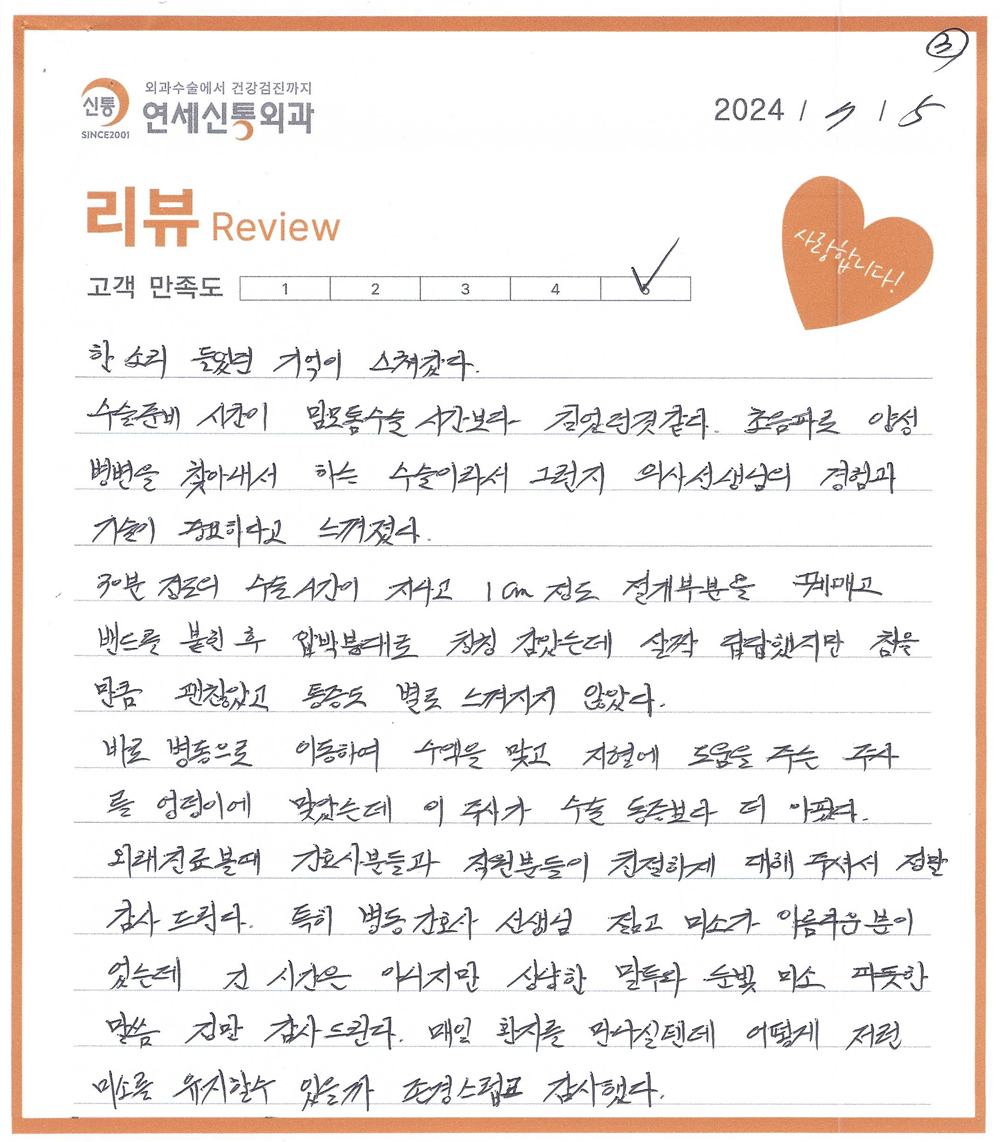 ③
신통
SINCE2001
외과수술에서 건강검진까지
연세신통외과
2024 / 7 / 5
리뷰 Review
사랑합니다!
고객 만족도 1 2 3 4 5
한 소리 들었던 기억이 스쳐갔다.
수술준비 시간이 맘모톰수술 시간보다 길었던것 같다. 초음파로 양성
병변을 찾아내서 하는 수술이라서 그런지 의사선생님의 경험과
기술이 중요하다고 느껴졌다.
30분 정도의 수술시간이 지나고 1cm 정도 절개부분을 꿰매고
밴드를 붙힌 후 압박붕대로 칭칭 감았는데 살짝 답답했지만 참을
만큼 괜찮았고 통증도 별로 느껴지지 않았다.
바로 병동으로 이동하여 수액을 맞고 지혈에 도움을 주는 주사
를 엉덩이에 맞았는데 이 주사가 수술 통증보다 더 아팠다.
외래진료볼때 간호사분들과 직원분들이 친절하게 대해 주셔서 정말
감사 드린다. 특히 병동 간호사 선생님 젊고 미소가 아름다운 분이
었는데 긴 시간은 아니지만 상냥한 말투와 눈빛 미소 따뜻한
말씀 정말 감사드린다. 매일 환자를 만나실텐데 어떻게 저런
미소를 유지할수 있을까 존경스럽고 감사했다.